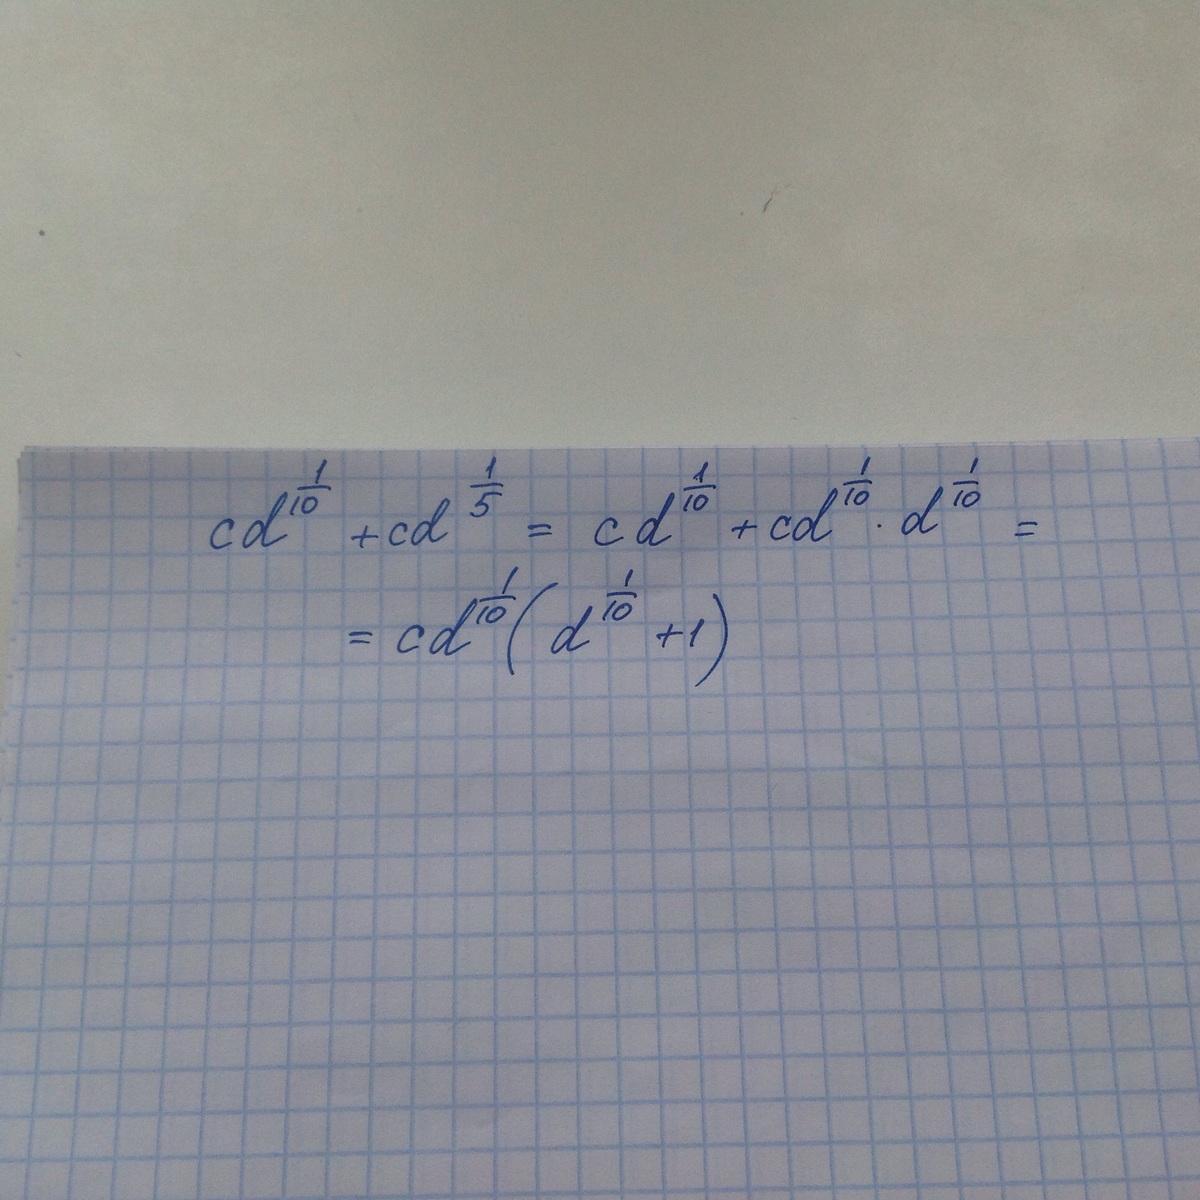 cd^{1/10} + cd^{1/5} = cd^{1/10} + cd^{1/10} · d^{1/10} =
= cd^{1/10} (d^{1/10} + 1)